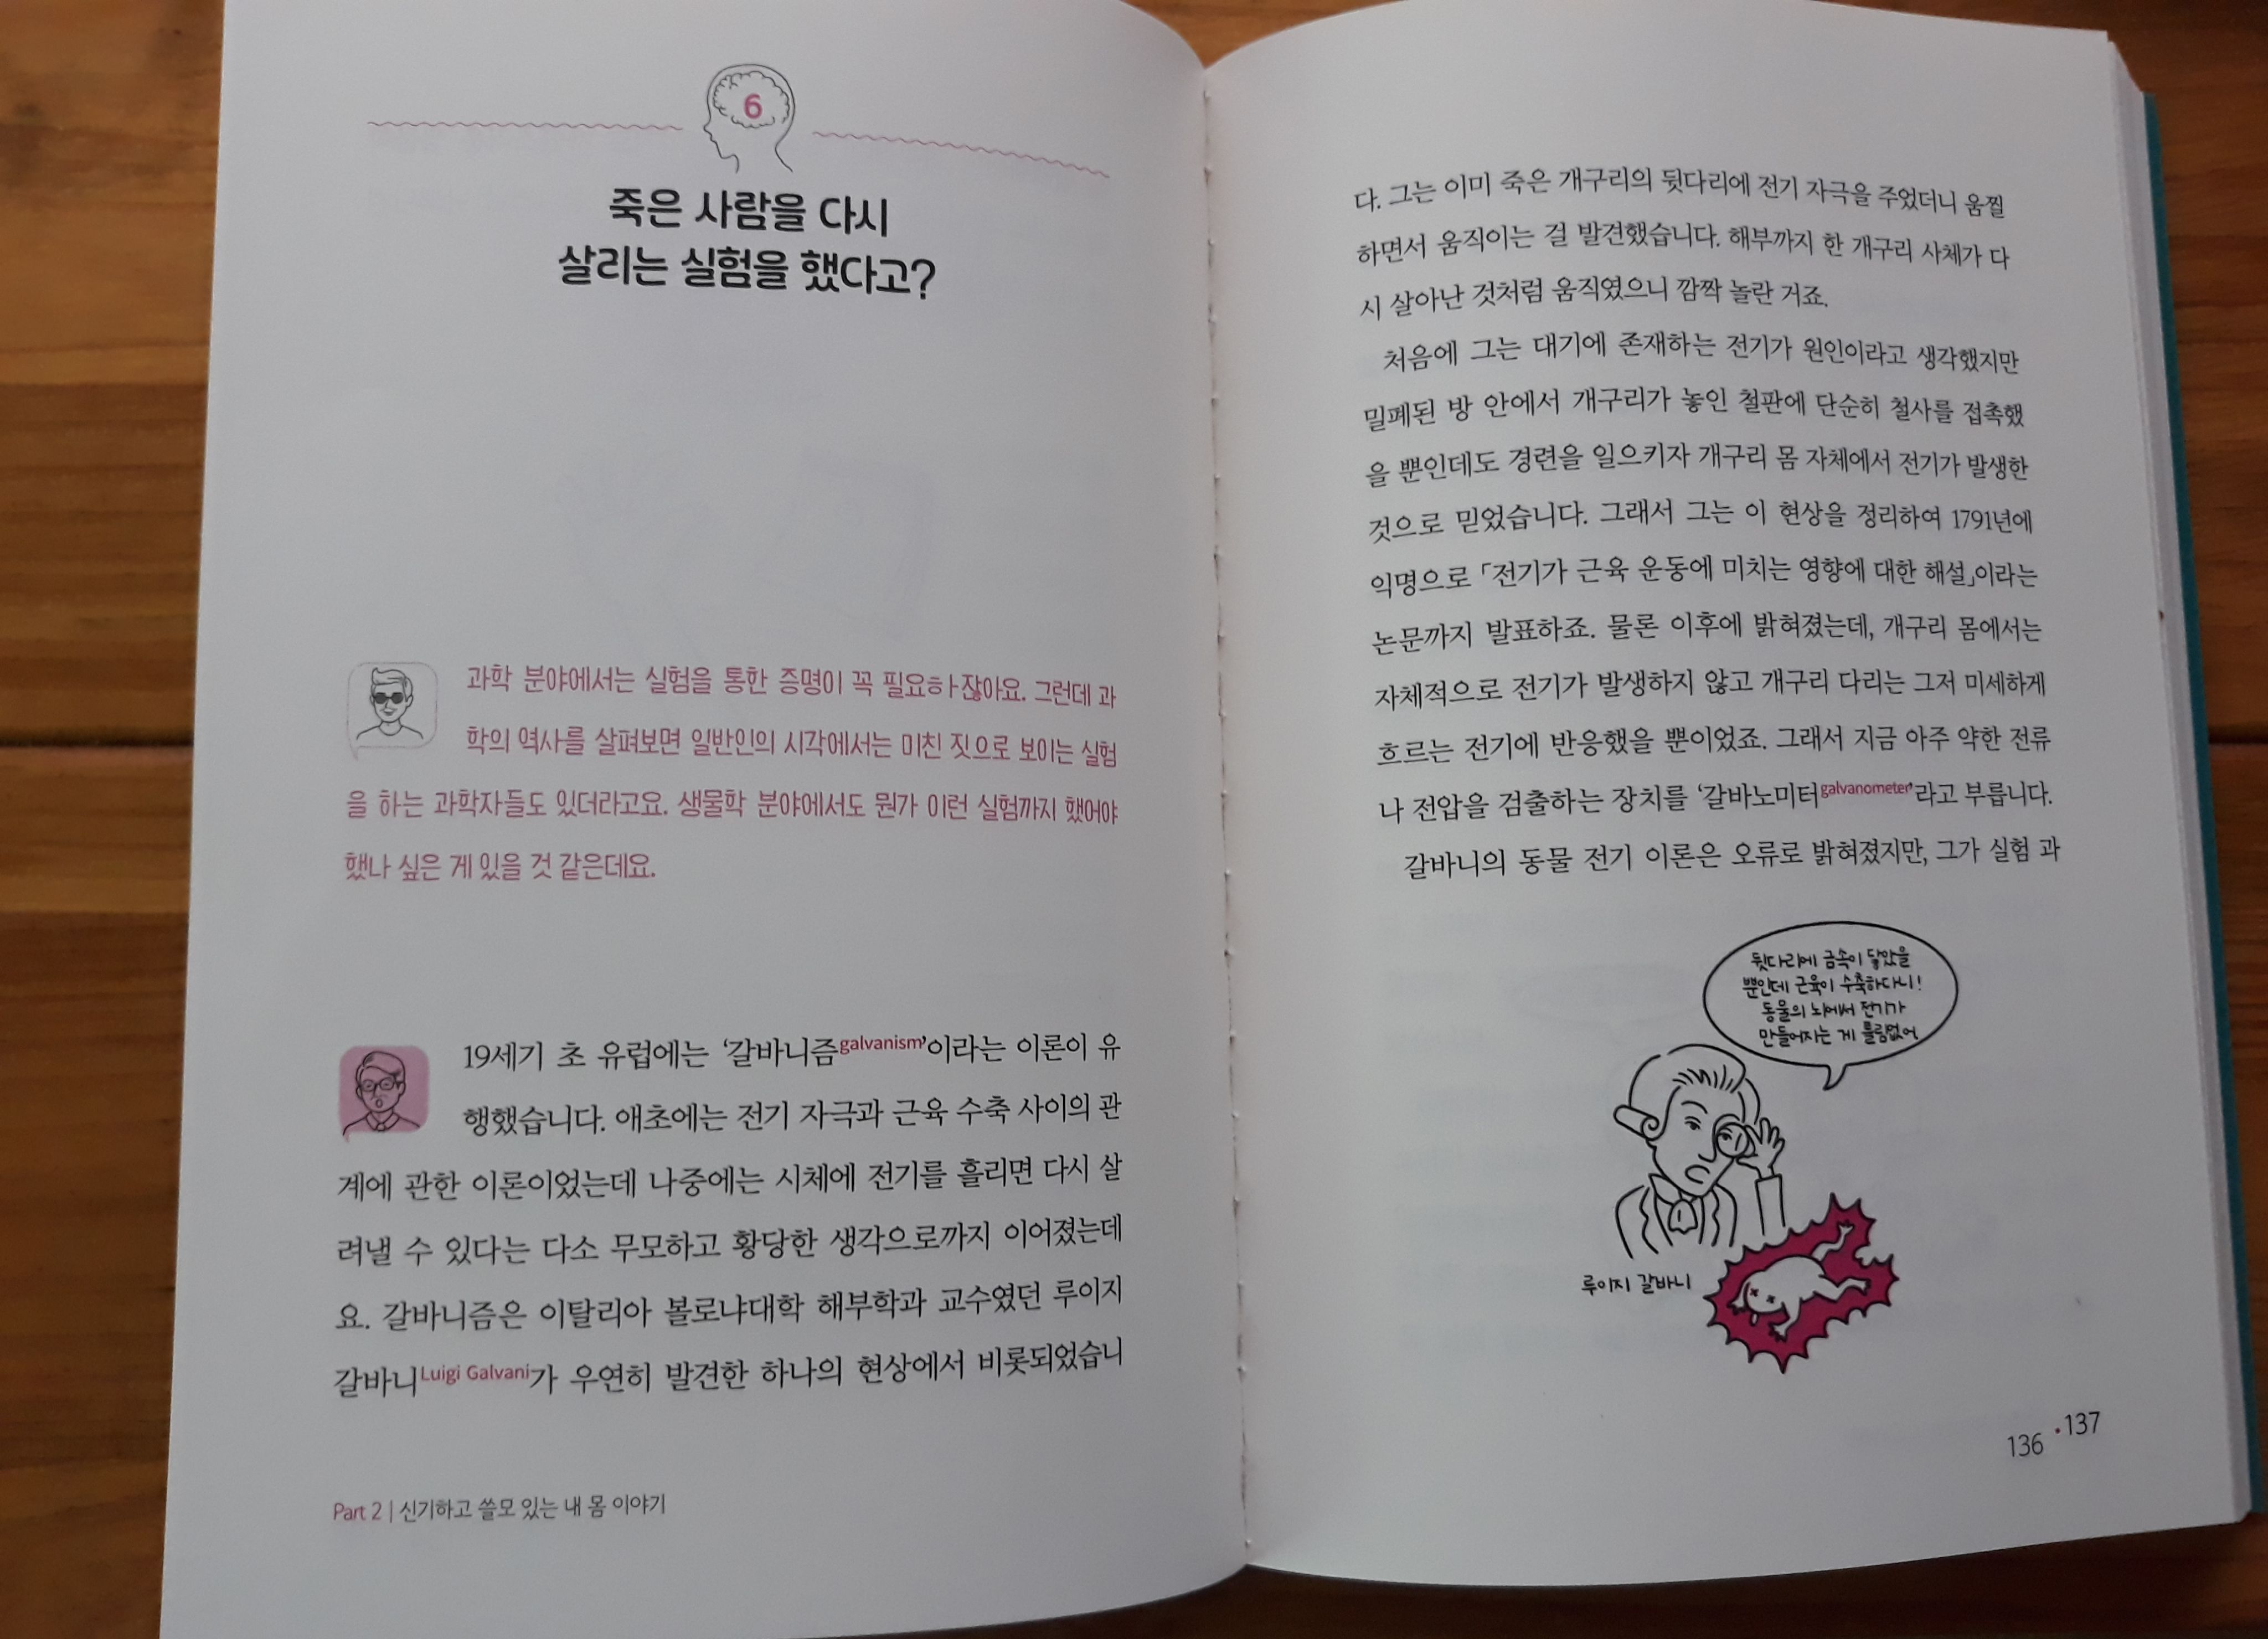 6
죽은 사람을 다시
살리는 실험을 했다고?
과학 분야에서는 실험을 통한 증명이 꼭 필요하잖아요. 그런데 과
학의 역사를 살펴보면 일반인의 시각에서는 미친 짓으로 보이는 실험
을 하는 과학자들도 있더라고요. 생물학 분야에서도 뭔가 이런 실험까지 했어야
했나 싶은 게 있을 것 같은데요.
19세기 초 유럽에는 ‘갈바니즘galvanism’이라는 이론이 유
행했습니다. 애초에는 전기 자극과 근육 수축 사이의 관
계에 관한 이론이었는데 나중에는 시체에 전기를 흘리면 다시 살
려낼 수 있다는 다소 무모하고 황당한 생각으로까지 이어졌는데
요. 갈바니즘은 이탈리아 볼로냐대학 해부학과 교수였던 루이지
갈바니Luigi Galvani가 우연히 발견한 하나의 현상에서 비롯되었습니
Part 2 | 신기하고 쓸모 있는 내 몸 이야기
다. 그는 이미 죽은 개구리의 뒷다리에 전기 자극을 주었더니 움찔
하면서 움직이는 걸 발견했습니다. 해부까지 한 개구리 사체가 다
시 살아난 것처럼 움직였으니 깜짝 놀란 거죠.
처음에 그는 대기에 존재하는 전기가 원인이라고 생각했지만
밀폐된 방 안에서 개구리가 놓인 철판에 단순히 철사를 접촉했
을 뿐인데도 경련을 일으키자 개구리 몸 자체에서 전기가 발생한
것으로 믿었습니다. 그래서 그는 이 현상을 정리하여 1791년에
익명으로 「전기가 근육 운동에 미치는 영향에 대한 해설」이라는
논문까지 발표하죠. 물론 이후에 밝혀졌는데, 개구리 몸에서는
자체적으로 전기가 발생하지 않고 개구리 다리는 그저 미세하게
흐르는 전기에 반응했을 뿐이었죠. 그래서 지금 아주 약한 전류
나 전압을 검출하는 장치를 ‘갈바노미터galvanometer’라고 부릅니다.
갈바니의 동물 전기 이론은 오류로 밝혀졌지만, 그가 실험 과
뒷다리에 금속이 닿았을
뿐인데 근육이 수축하다니!
동물의 뇌에서 전기가
만들어지는 게 틀림없어
루이지 갈바니
136 · 137